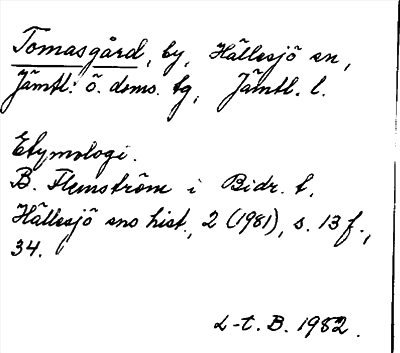 Tomasgård, by, Hällesjö sn,
Jämtl: ö. doms. tg, Jämtl. l.
Etymologi.
B. Flemström i Bidr. t.
Hällesjö sns hist., 2 (1981), s. 13 f.,
34.
L-t. B. 1982.